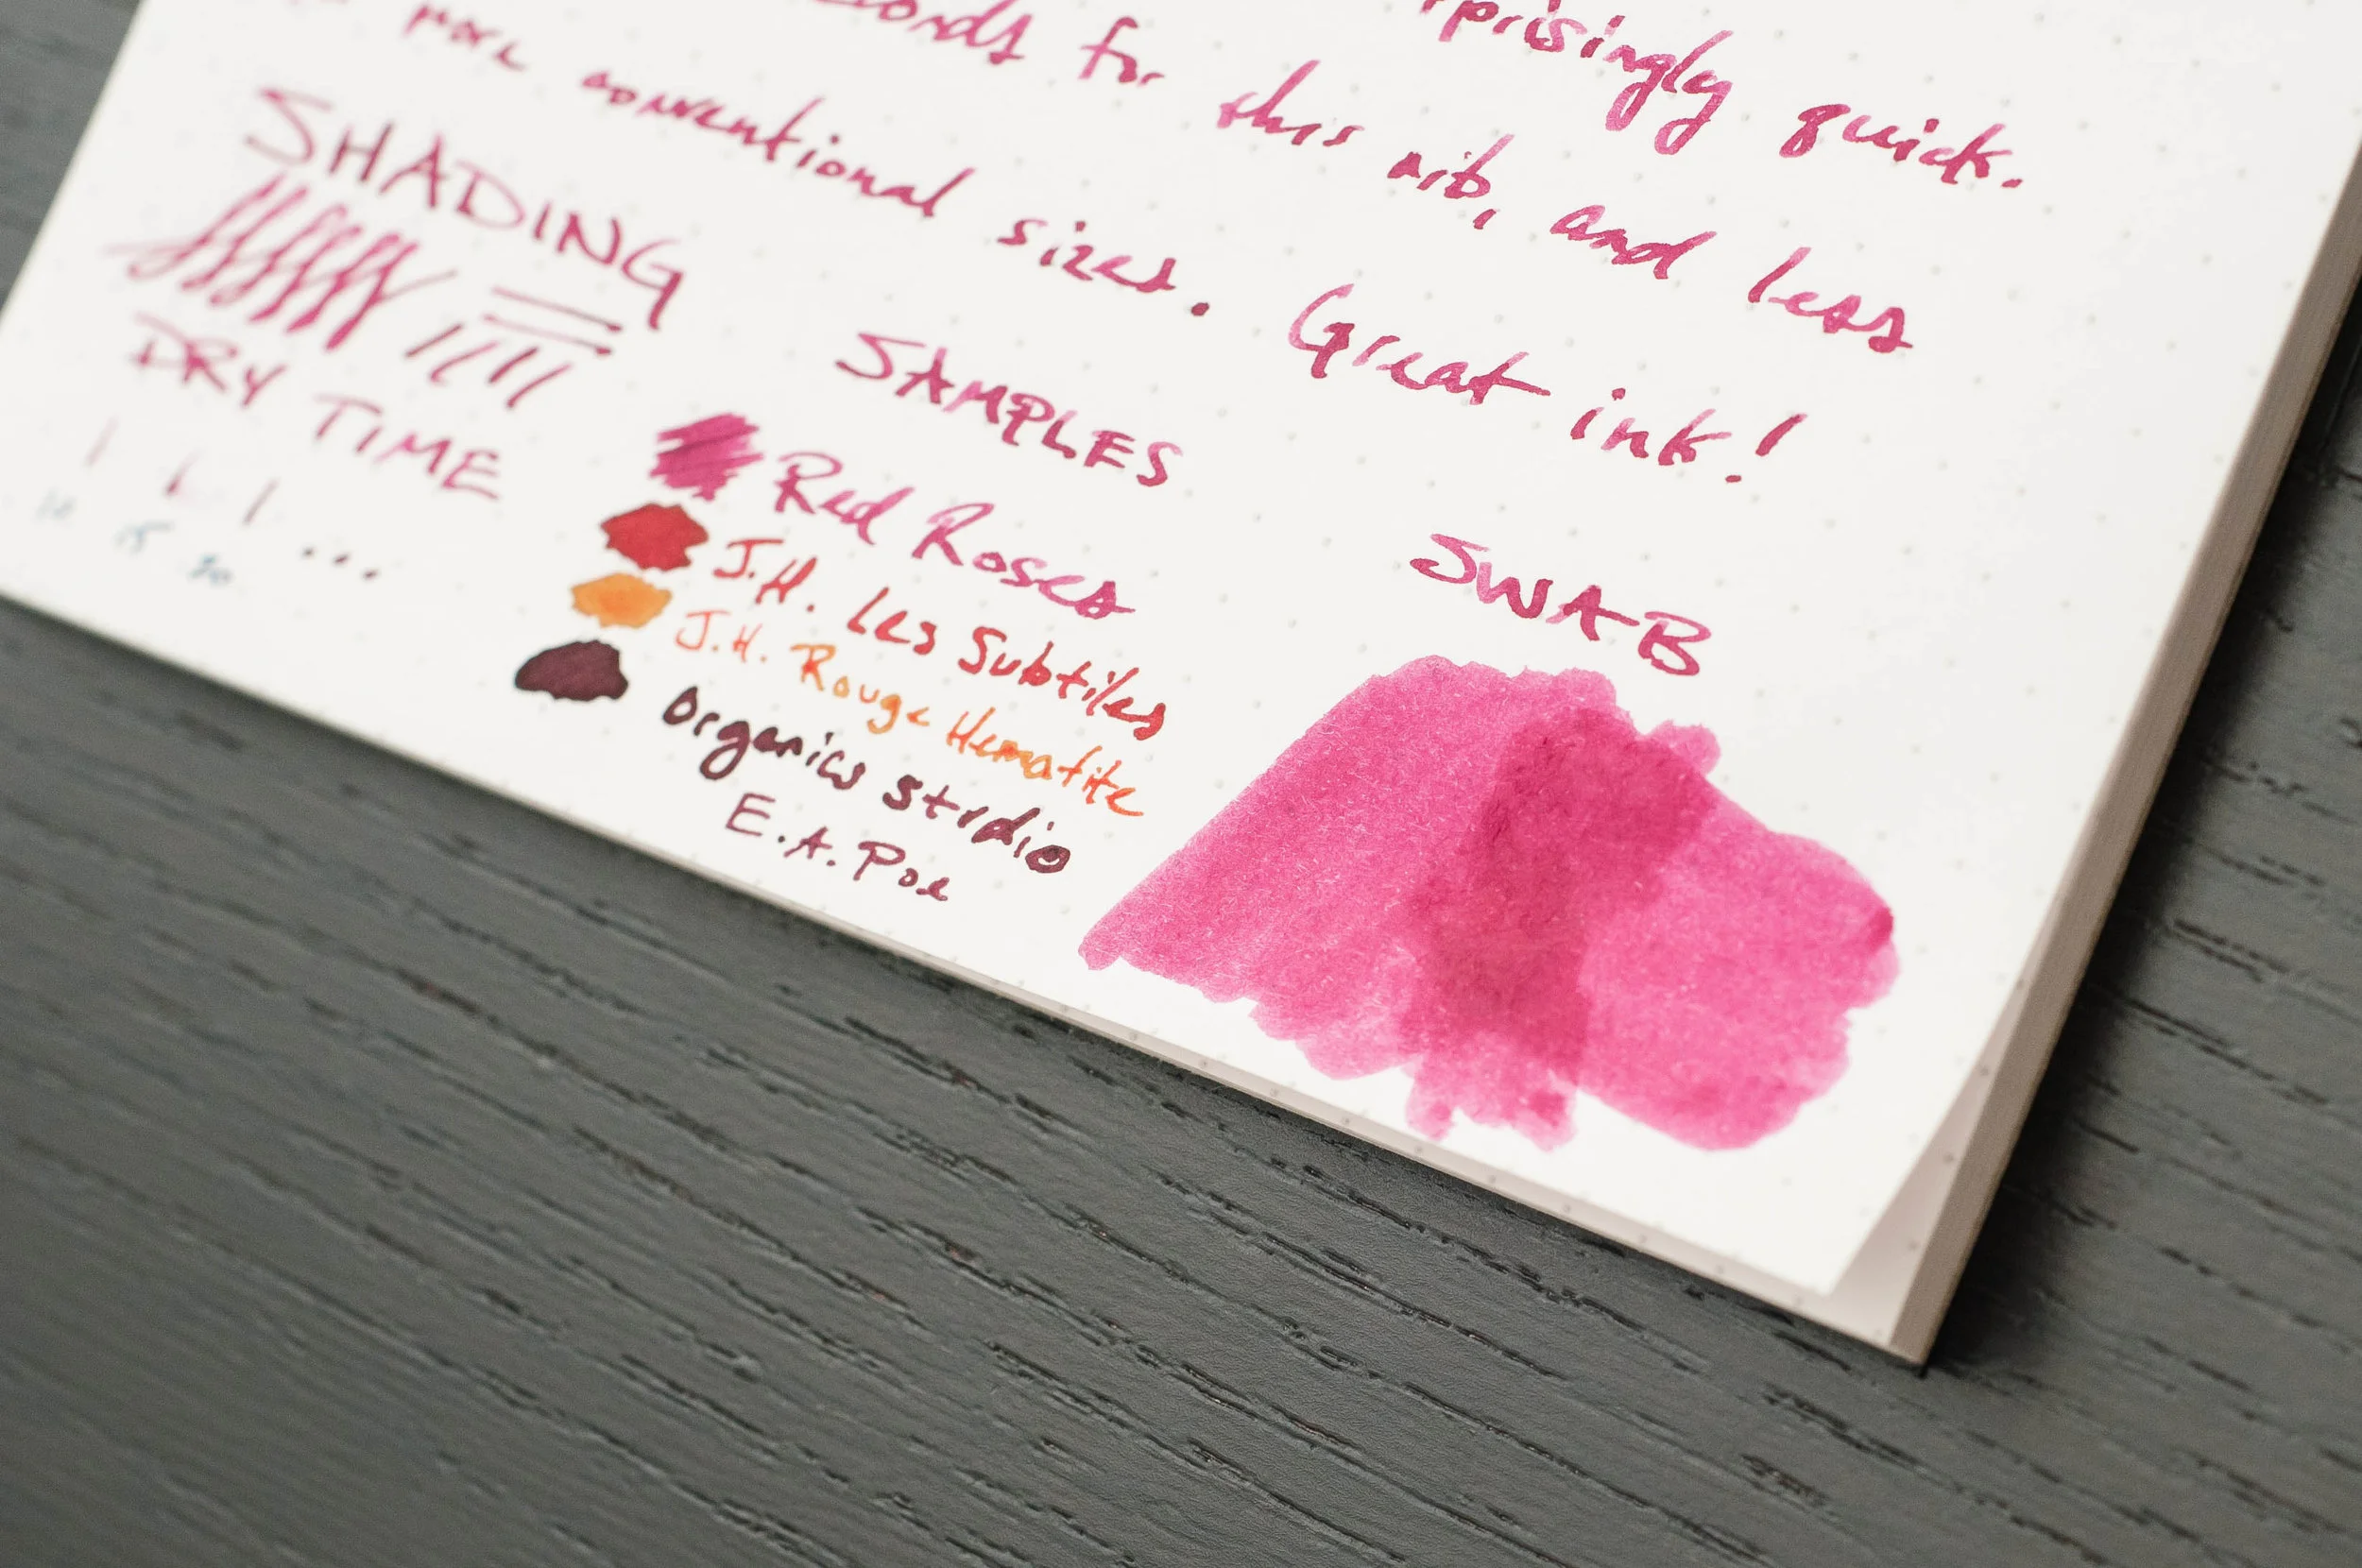 prisingly quick.
conds for this nib, and less
more conventional sizes. Great ink!
SHADING
DRY TIME
10 15 20 ...
SAMPLES
Red Roses
J.H. Les Subtiles
J.H. Rouge Hematite
Organics Studio
E.A. Poe
SWAB